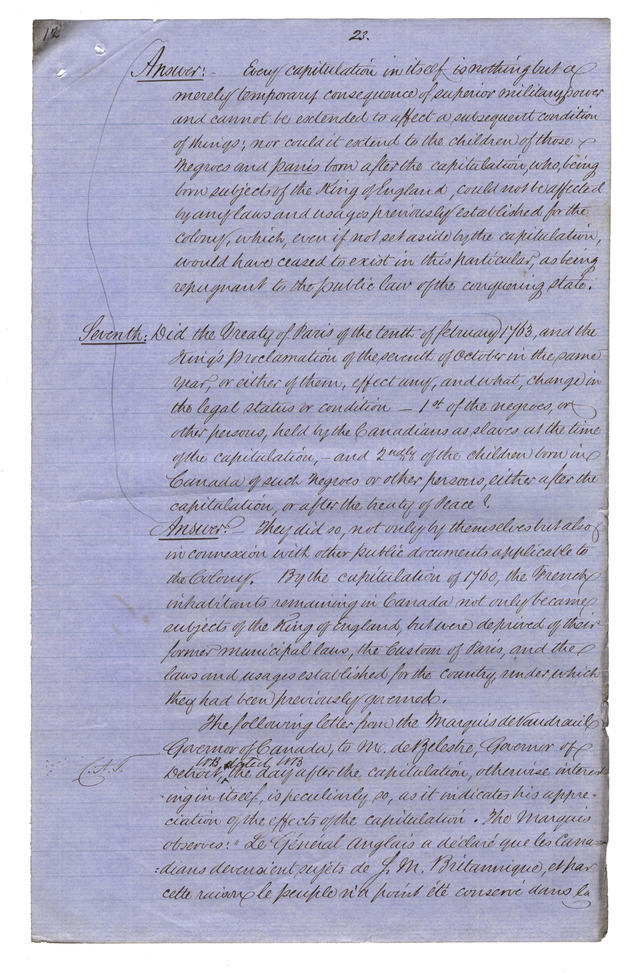 23.
Answer:- Every capitulation in itself is nothing but a
merely temporary consequence of superior military power
and cannot be extended to affect a subsequent condition
of things; nor could it extend to the children of those
Negroes and panis born after the capitulation, who, being
born subjects of the King of England, could not be affected
by any laws and usages previously established for the
colony, which, even if not set aside by the capitulation,
would have ceased to exist in this particular, as being
repugnant to the public law of the conquering state.
Seventh: Did the Treaty of Paris of the tenth of february 1763, and the
King's Proclamation of the seventh of October in the same
year, or either of them, effect any, and what, change in
the legal status or condition — 1st of the negroes, or
other persons, held by the Canadians as slaves at the time
of the capitulation, - and 2ndly of the children born in
Canada of such Negroes or other persons, either after the
capitulation, or after the treaty of Peace?
Answer:- They did so, not only by themselves but also
in connexion with other public documents applicable to
the Colony. By the capitulation of 1760, the French
inhabitants remaining in Canada not only became
subjects of the King of England, but were deprived of their
former municipal laws, the Custom of Paris, and the
laws and usages established for the country, under which
they had been previously governed.
The following letter from the Marquis de Vaudreuil
Governor of Canada, to M. de Belestre, Governor of
Detroit, the day after the capitulation, otherwise interest
ing in itself, is peculiarly so, as it indicates his appre-
ciation of the effects of the capitulation. The Marquis
observes: "Le Général Anglais a déclaré que les Cana-
=diens devenoient sujets de S. M. Britannique, et par
cette raison le peuple n'a point été conservé dans la